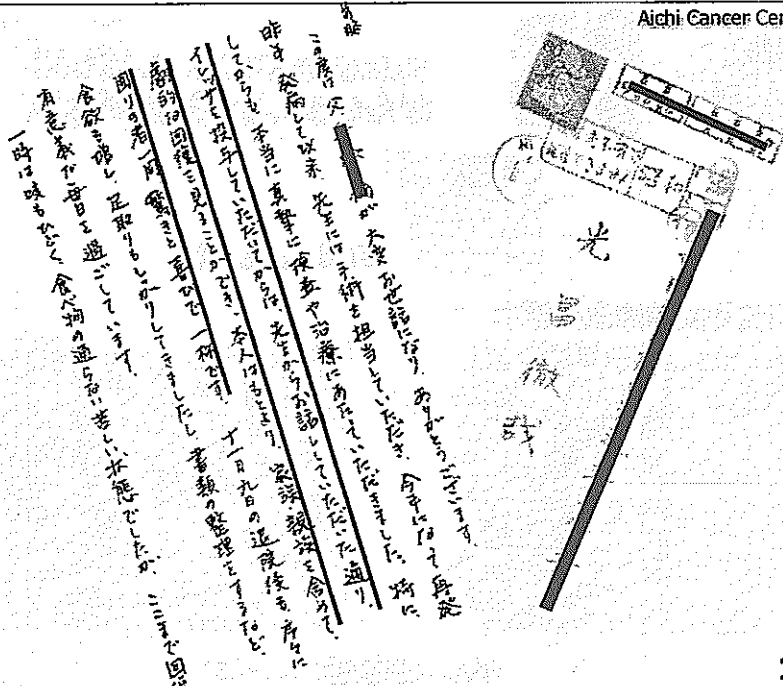 Aichi Cancer Cen
前略
この度は父 が大変お世話になり、ありがとうございます。
昨年発病して以来、先生には手術を担当していただき、今年になって再発
してからも、本当に真摯に検査や治療にあたっていただきました。特に、
イレッサを投与していただいてからは、先生からお話ししていただいた通り、
劇的な回復を見ることができ、本人はもとより、家族・親族を含めて、
周りの者一同、驚きと喜びで一杯です。十一月九日の退院後も、序々に
食欲も増し、足取りもしっかりしてきましたし、書類の整理をするなど、
有意義な毎日を過ごしています。
一時は咳もひどく、食べ物の通らない苦しい状態でしたが、ここまで回復
光冨徹哉